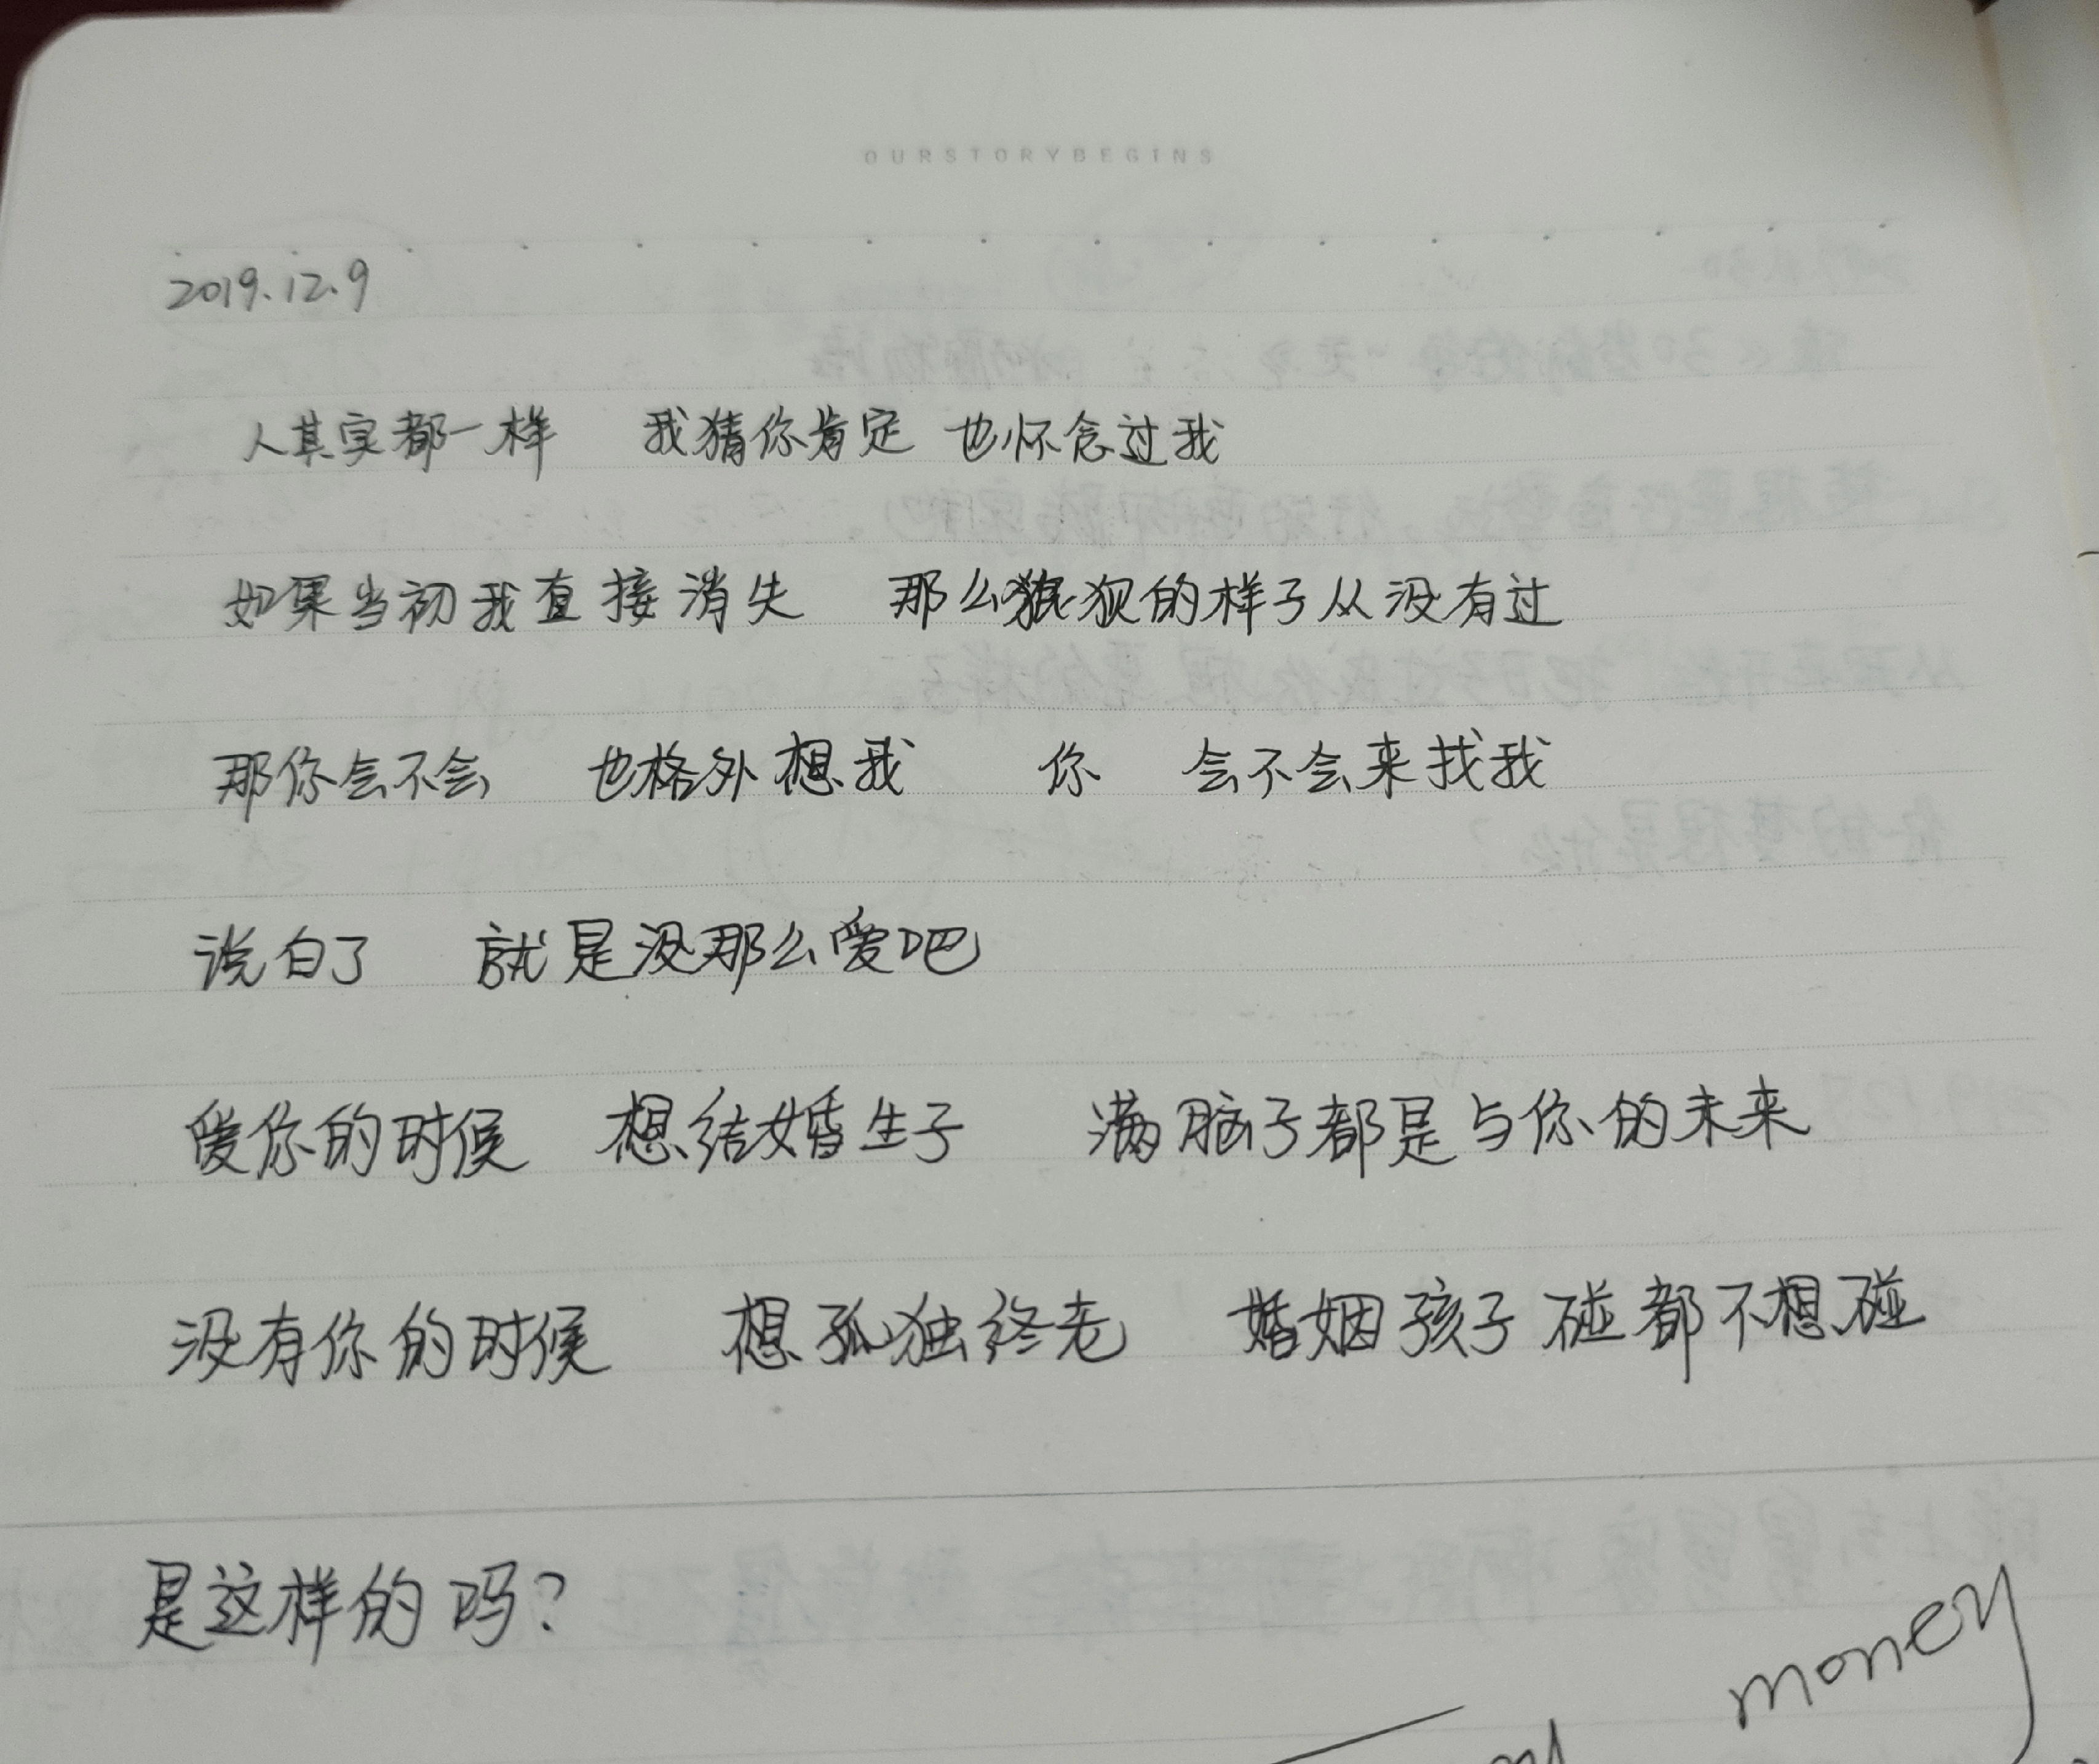 OURSTORYBEGINS
2019.12.9
人其实都一样 我猜你肯定 也怀念过我
如果当初我直接消失 那么狼狈的样子从没有过
那你会不会 也格外想我 你 会不会来找我
说白了 就是没那么爱吧
爱你的时候 想结婚生子 满脑子都是与你的未来
没有你的时候 想孤独终老 婚姻孩子碰都不想碰
是这样的吗?
money